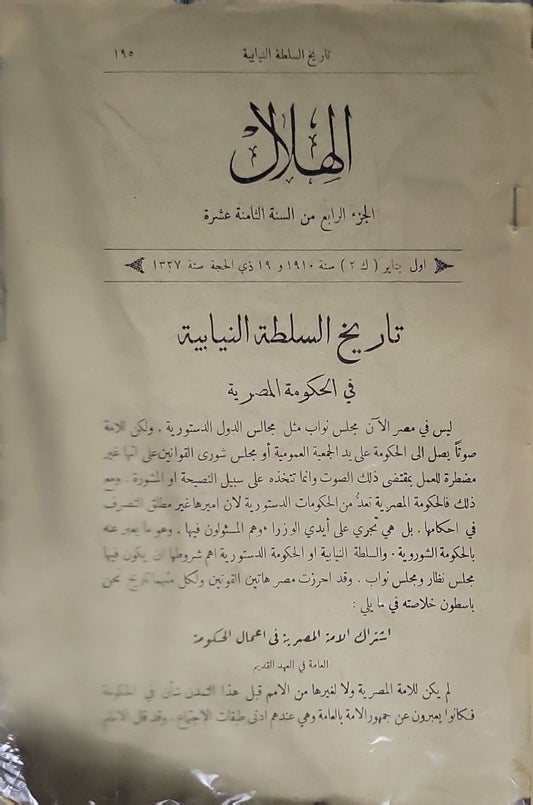 تاريخ السلطة النيابية ١٩٥
الهلال
الجزء الرابع من السنة الثامنة عشرة
اول يناير ( ك ٢ ) سنة ١٩١٠ و ١٩ ذي الحجة سنة ١٣٢٧
تاريخ السلطة النيابية
في الحكومة المصرية
ليس في مصر الآن مجلس نواب مثل مجالس الدول الدستورية . ولكن للامة
صوتاً يصل الى الحكومة على يد الجمعية العمومية أو مجلس شورى القوانين على انها غير
مضطرة للعمل بمقتضى ذلك الصوت وانما تتخذه على سبيل النصيحة او المشورة . ومع
ذلك فالحكومة المصرية تعدُّ من الحكومات الدستورية لان اميرها غير مطلق التصرف
في احكامها . بل هي تجري على أيدي الوزراء وهم المسئولون فيها . وهو ما يعبر عنه
بالحكومة الشوروية . والسلطة النيابية او الحكومة الدستورية اهم شروطها ان يكون فيها
مجلس نظار ومجلس نواب . وقد احرزت مصر هاتين القوتين ولكل منهما تاريخ نحن
باسطون خلاصته في ما يلي :
اشتراك الامة المصرية فى اعمال الحكومة
العامة في العهد القديم
لم يكن للامة المصرية ولا لغيرها من الامم قبل هذا التمدن شأن في الحكومة
فكانوا يعبرون عن جمهور الامة بالعامة وهي عندهم ادنى طبقات الاجتماع . وقد قال